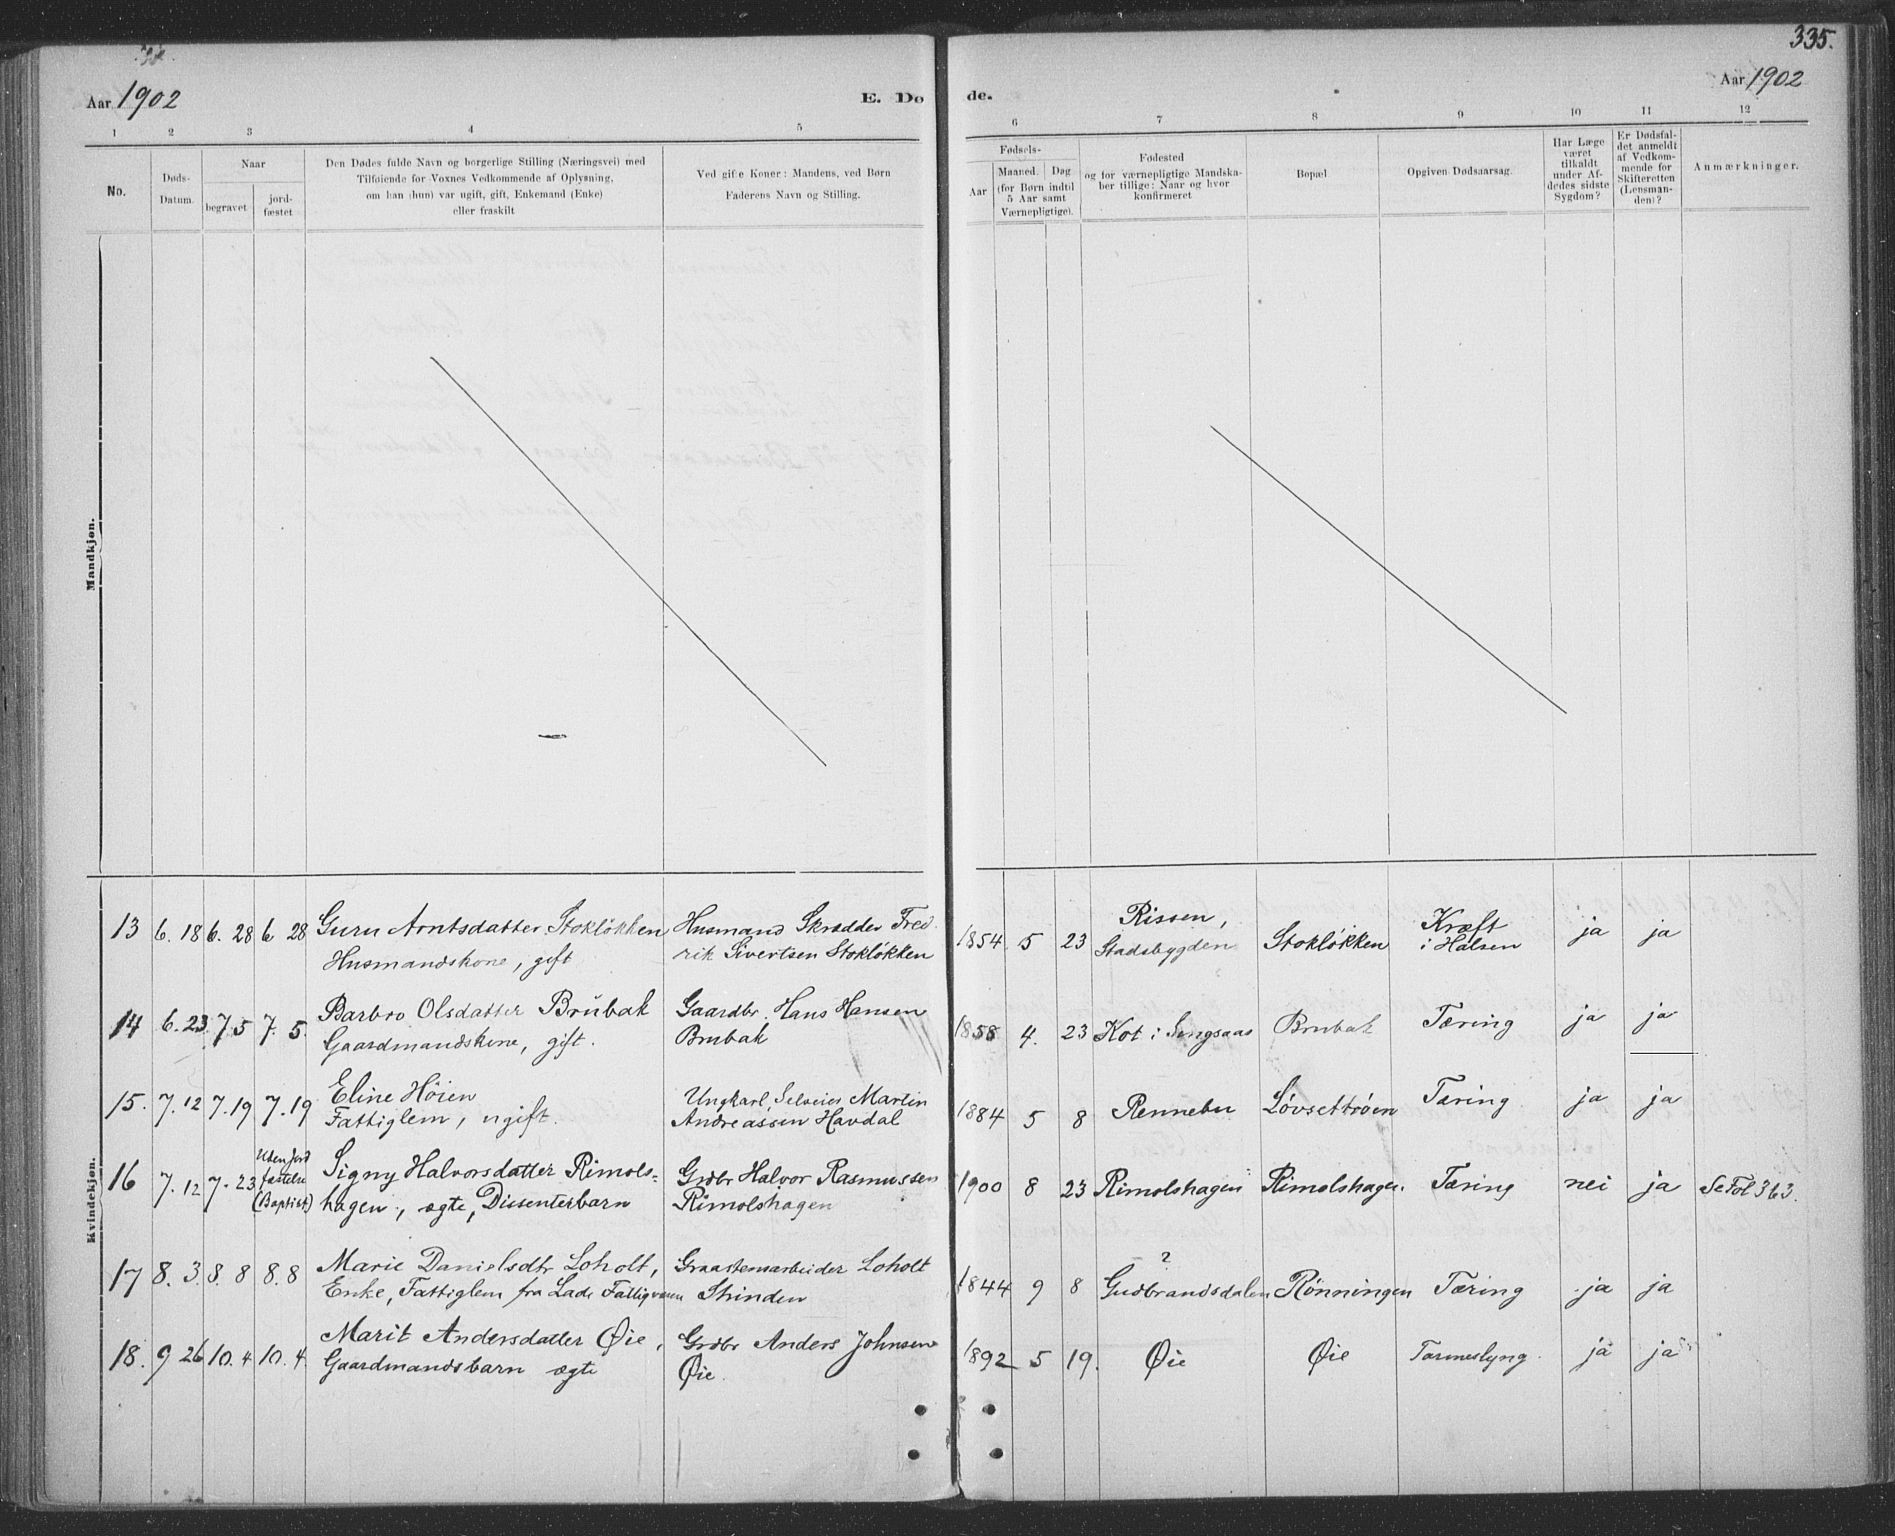 335.
Aar 1902
E. Dø
de.
Aar 1902
1 2 3 4 5 6 7 8 9 10 11 12
No.
Døds-
Datum.
Naar
begravet
jord-
fæstet
Den Dødes fulde Navn og borgerlige Stilling (Næringsvei) med
Tilføiende for Voxnes Vedkommende af Oplysning,
om han (hun) var ugift, gift, Enkemand (Enke)
eller fraskilt
Ved gifte Koner: Mandens, ved Børn
Faderens Navn og Stilling.
Fødsels-
Aar
Maaned. Dag
(for Børn indtil
5 Aar samt
Værnepligtige).
Fødested
og for værnepligtige Mandska-
ber tillige: Naar og hvor
konfirmeret
Bopæl
Opgiven Dødsaarsag.
Har Læge
været
tilkaldt
under Af-
dødes sidste
Sygdom?
Er Dødsfal-
det anmeldt
af Vedkom-
mende for
Skifteretten
(Lensman-
den)?
Anmærkninger.
Mandkjøn.
Kvindekjøn.
13 6. 18 6. 28 6 28 Guru Arntsdatter Stokløkken
Husmandskone, gift
Husmand Skrædder Fred
rik Sivertsen Stokløkken
1854 5 23 Rissen,
Stadsbygden
Stokløkken
Kræft
i Halsen
ja ja
14 6. 23 7 5 7. 5. Barbro Olsdatter Brubak
Gaardmandskone, gift.
Gaardbr. Hans Hansen
Brubak
1858 4. 23 Kot i Singsaas Brubak Tæring ja ja
15. 7. 12 7. 19 7. 19 Eline Høien
Fattiglem, ugift.
Ungkarl, Selveier Martin
Andreassen Havdal
1884 5 8 Rennebu Løvsettrøen Tæring ja ja
16 7. 12 7. 23 Uden Jord
fæstelse
(Baptist)
Signy Halvorsdatter Rimols-
hagen, ægte, Dissenterbarn
Grdbr Halvor Rasmussen
Rimolshagen
1900 8 23 Rimolshagen Rimolshagen. Tæring nei ja Se Fol 363.
17 8. 3. 8. 8 8. 8 Marie Danielsdtr Loholt,
Enke, Fattiglem fra Lade Fattigvæsen
Graastensarbeider Loholt
Strinden
1844 9 8 ?
Gudbrandsdalen Rønningen Tæring ja ja
18. 9 26 10. 4 10. 4. Marit Andersdatter Øie,
Gaardmandsbarn ægte
Grdbr Anders Johnsen
Øie.
1892 5 19. Øie Øie Tarmeslyng ja ja